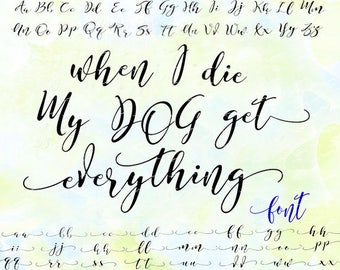 Aa Bb Cc Dd Ee Ff Gg Hh Ii Jj Kk Ll Mm
Nn Oo Pp Qq Rr Ss Tt Uu Vv Ww Xx Yy Zz
when I die
My DOG get
everything
font
aa bb cc dd ee ff gg hh
ii jj kk ll mm nn oo pp
qq rr ss tt